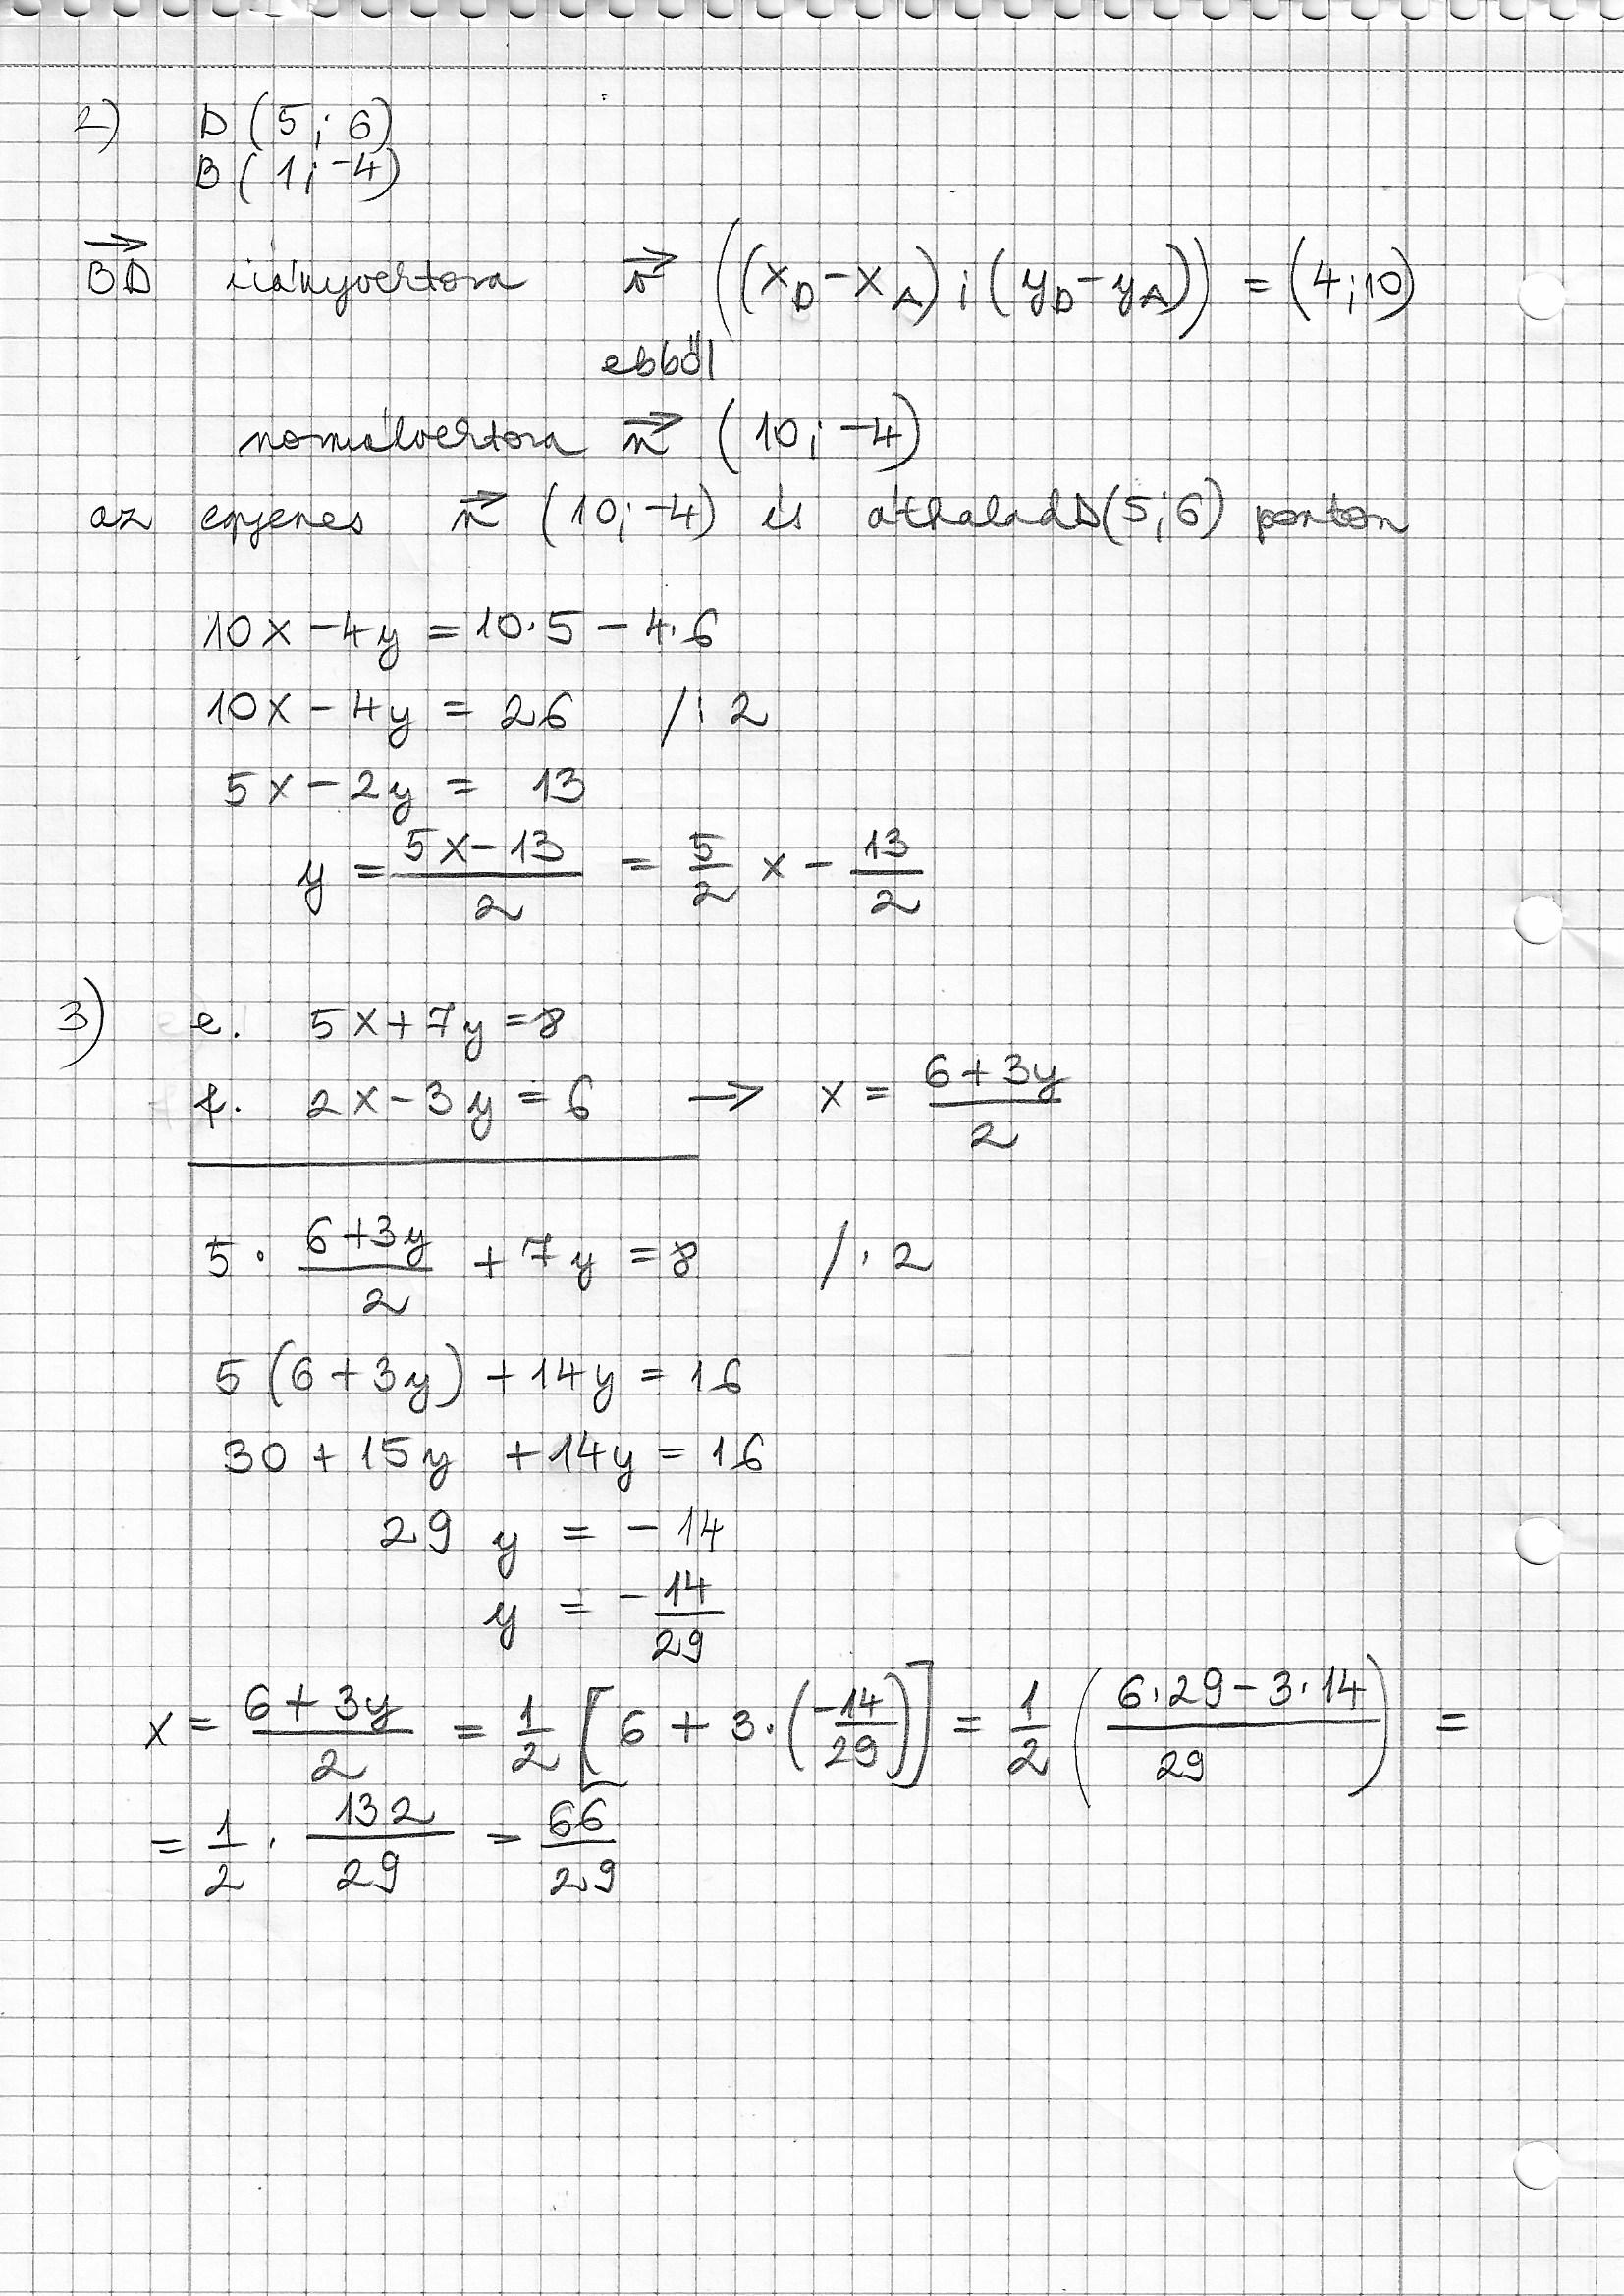 2) D (5; 6)
B (1; -4)
→BD irányvektora →v ((x_D - x_A); (y_D - y_A)) = (4; 10)
ebből
normálvektora →n (10; -4)
az egyenes →n (10; -4) és áthalad D(5; 6) ponton
10x - 4y = 10·5 - 4·6
10x - 4y = 26 /: 2
5x - 2y = 13
y = (5x - 13)/2 = 5/2 x - 13/2
3) e. 5x + 7y = 8
f. 2x - 3y = 6 → x = (6 + 3y)/2
5 · (6 + 3y)/2 + 7y = 8 /· 2
5 (6 + 3y) + 14y = 16
30 + 15y + 14y = 16
29 y = - 14
y = - 14/29
x = (6 + 3y)/2 = 1/2 [6 + 3·(-14/29)] = 1/2 ((6·29 - 3·14)/29) =
= 1/2 · 132/29 = 66/29